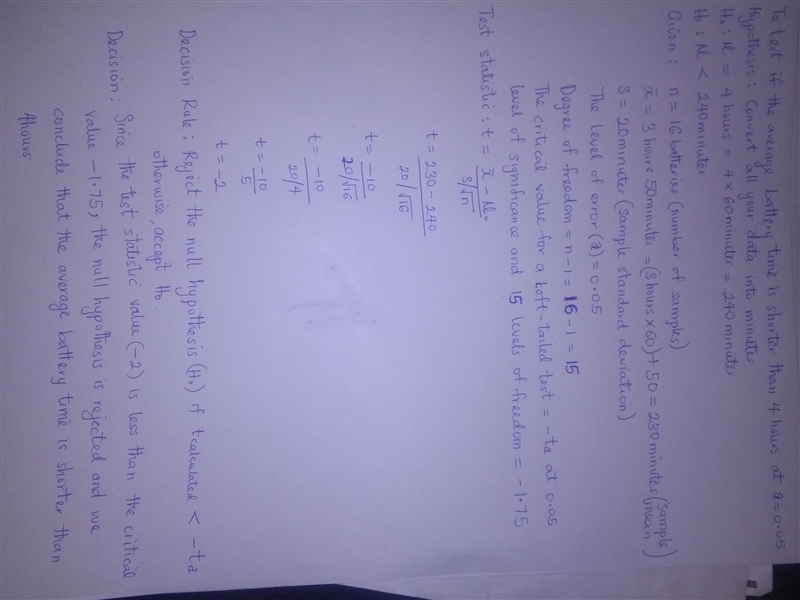 To test if the average battery time is shorter than 4 hours at α=0.05
Hypothesis: Convert all your data into minutes
H₀: μ = 4 hours = 4 x 60minutes = 240 minutes
H₁: μ < 240 minutes
Given: n = 16 batteries (number of samples)
x̄ = 3 hours 50 minutes = (3 hours x 60) + 50 = 230 minutes (sample mean)
S = 20 minutes (sample standard deviation)
The level of error (α) = 0.05
Degree of freedom = n - 1 = 16 - 1 = 15
The critical value for a left-tailed test = -tα at 0.05
level of significance and 15 levels of freedom = -1.75
Test statistic: t = x̄ - μ₀ / S/√n
t = 230 - 240 / 20/√16
t = -10 / 20/√16
t = -10 / 20/4
t = -10 / 5
t = -2
Decision Rule: Reject the null hypothesis (H₀) if tcalculated < -tα
otherwise, accept H₀.
Decision: Since the test statistic value (-2) is less than the critical
value -1.75, the null hypothesis is rejected and we
conclude that the average battery time is shorter than
4hours